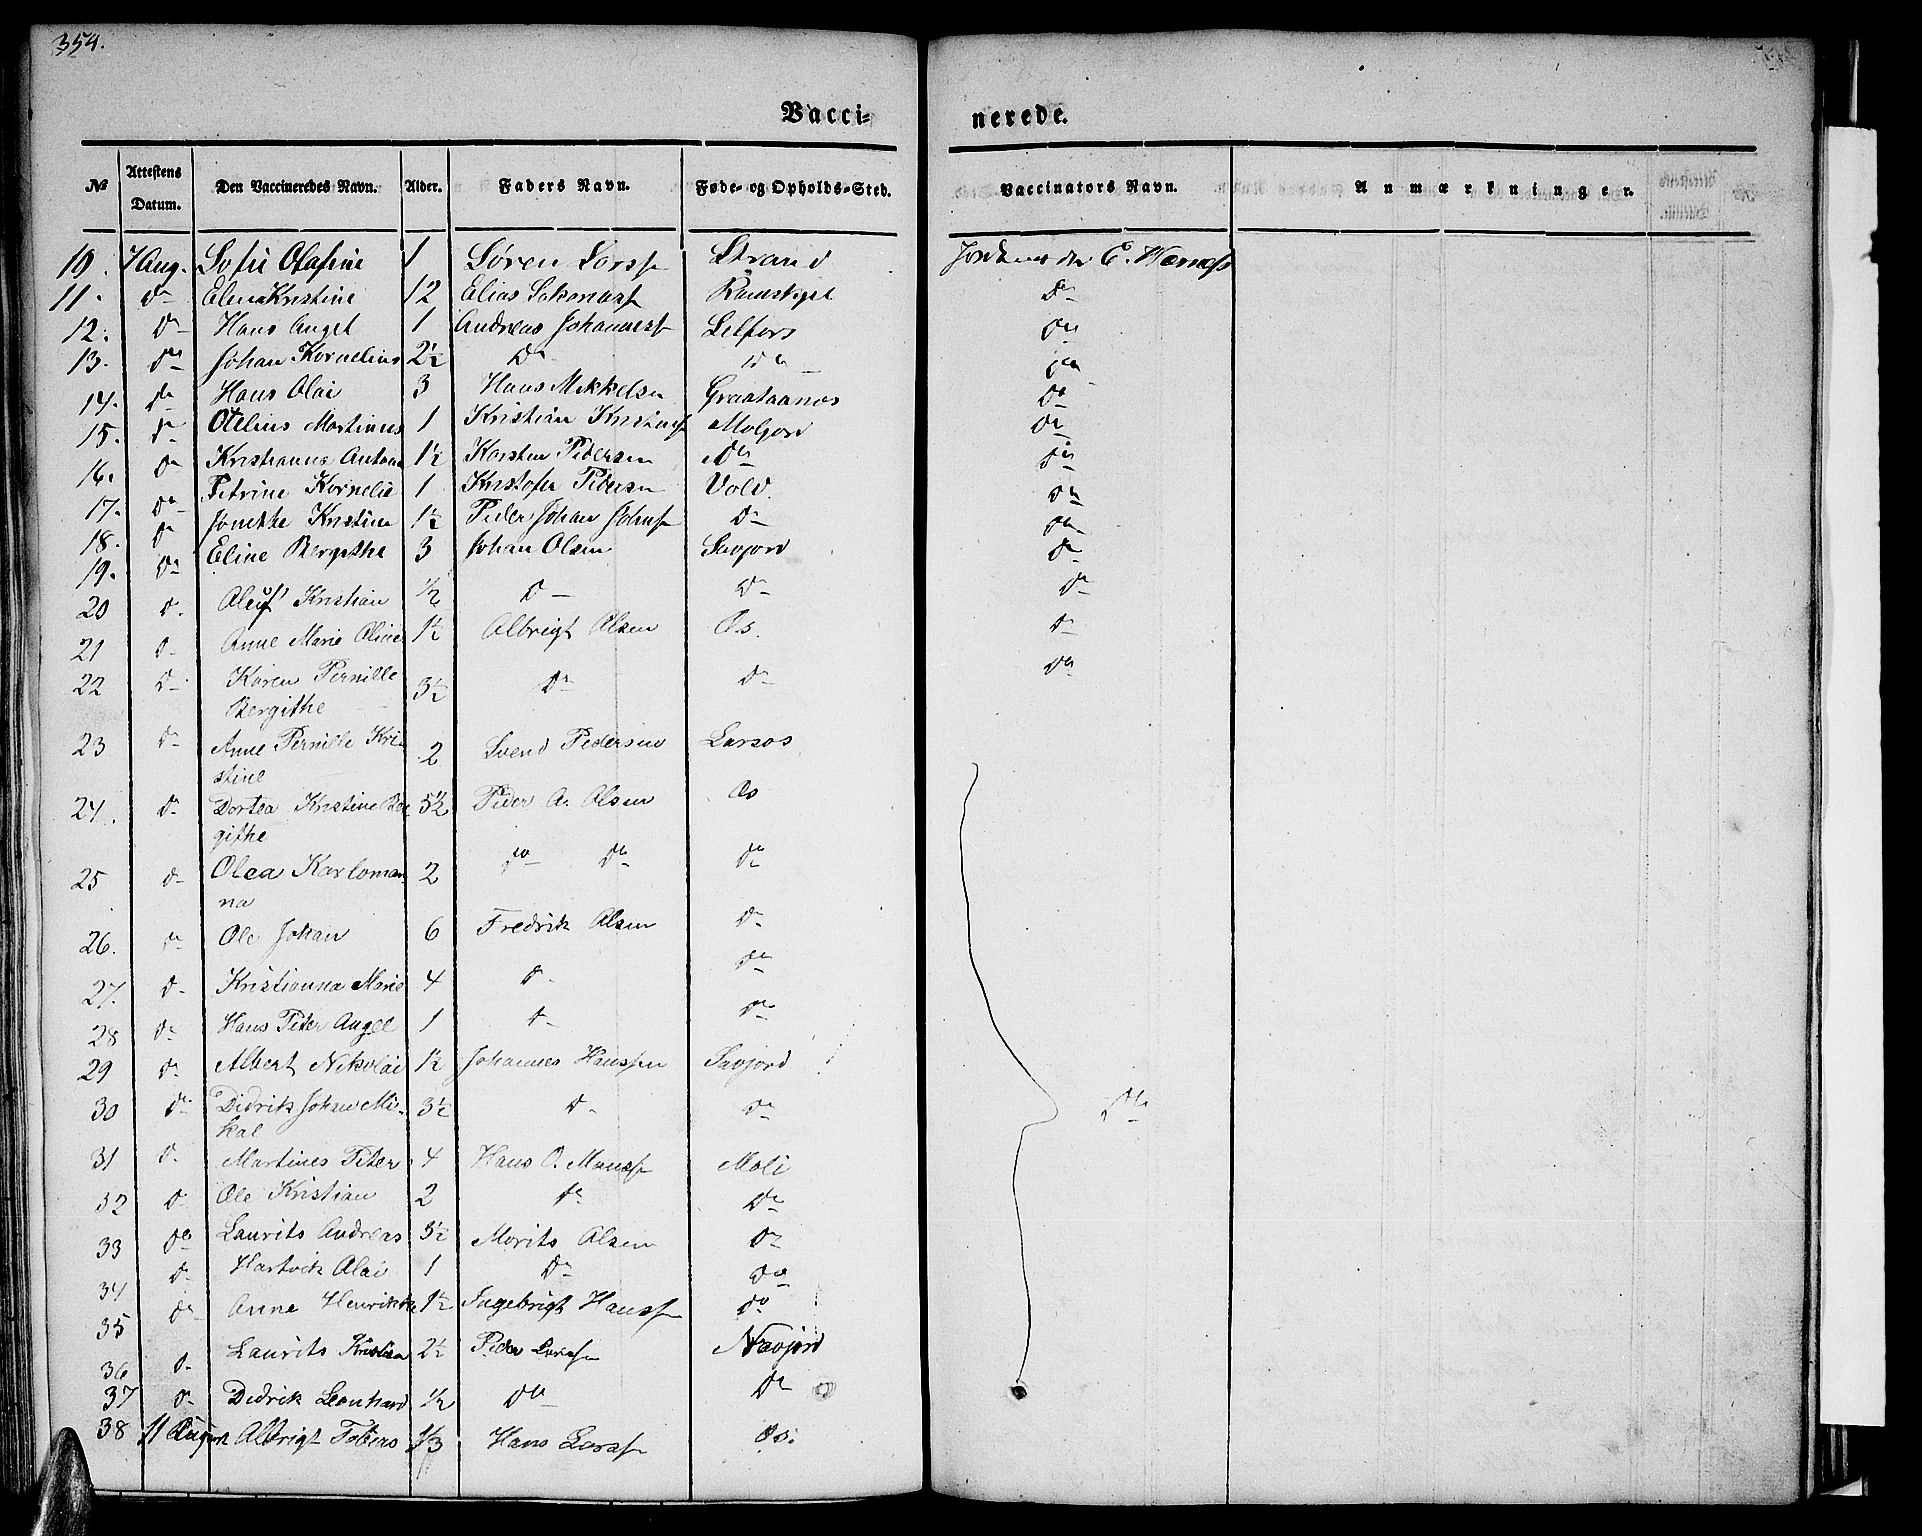 354.
Vacci- nerede.
№ Attestens Datum. Den Vaccineredes Navn. Alder. Faders Navn. Føde- og Opholds-Sted. Vaccinators Navn. Anmærkninger.
10. 7 Aug. Sofie Olafine 1 Søren Larss Strand E.
11. Do Elen Kristine 12 Elias Do
12. Do Hans Angel 1 Andreas Johanness Lilfors Do
13. Do Johan Kornelius 2½ Do Do Do
14. Do Hans Olai 3 Hans Mikkelsen Graataanæs Do
15. Do Otelius Martinus 1 Kristian Molgord Do
16. Do Kristianna Antona 1½ Karsten Pedersen Do Do
17. Do Petrine Kornelie 1 Kristofer Pedersen Vold. Do
18. Do Kristine 1½ Peder Johan Johnsn Do Do
19. Do Eline Bergithe 3 Johan Olsen Savjord Do
20 D. Kristian ½ D Do Do
21 D Anne Marie Oline 1½ Albrigt Olsen Os. Do
22 D Karen Pernille 3½ Do Do Do
Bergithe
23 Do Anne Pernille Kri- 2 Svend Pedersen Larsos
stine
24. Do Dortea Kristine Ber 5½ Peder A. Olsen Os
githe
25 D Olea Karloman 2 Do Do Do
na
26. Do Ole Johan 6 Fredrik Olsen Do
27. D Kristianna Marie 4 D Do
28 Do Hans Peter Angel 1 D Do
29 Do Albert Nikolai 1½ Johannes Hanssen Savjord
30 Do Didrik Johan Mi- 3½ D Do Do
kal
31 D Martines Peter 4 Hans O. Monss Moli
32 D Ole Kristian 2 Do Do
33 Do Laurits Andreas 3½ Morits Olsen Do
34 D Hartvik Olai 1 Do Do
35 Do Anne Henrikke 1½ Ingebrigt Hanss Do
36 D Laurits Kristian 2½ Peder Larss Navjord
37 D Didrik Leonhard ½ Do Do
38 11 August Albrigt Tobias Hans Larss Os.